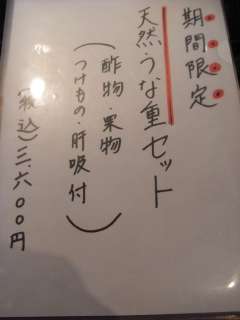 期間限定
天然うな重セット
(酢物・果物
つけもの・肝吸付)
(税込)三、六〇〇円